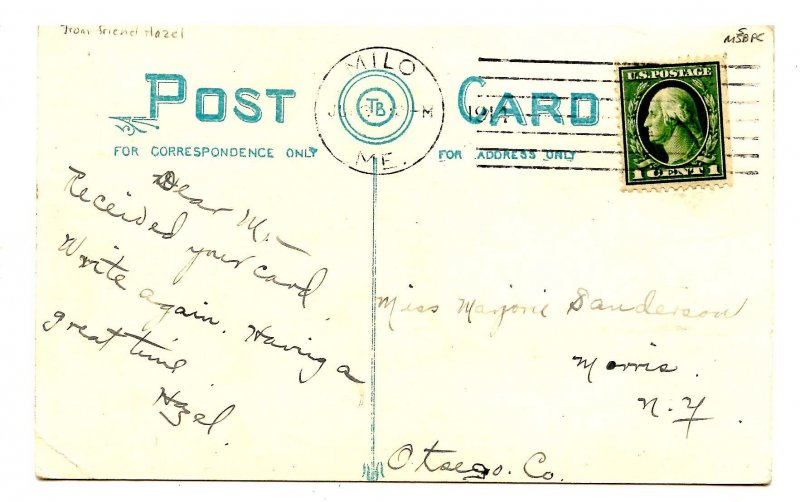 From friend Hazel
M5BPC
POST CARD
FOR CORRESPONDENCE ONLY
FOR ADDRESS ONLY
MILO
TB
M
ME.
U.S. POSTAGE
1 CENT 1
Dear M.
Received your card.
Write again. Having a
great time
Hazel.
Miss Marjorie Sanderson
Morris.
N.Y.
Otsego. Co.